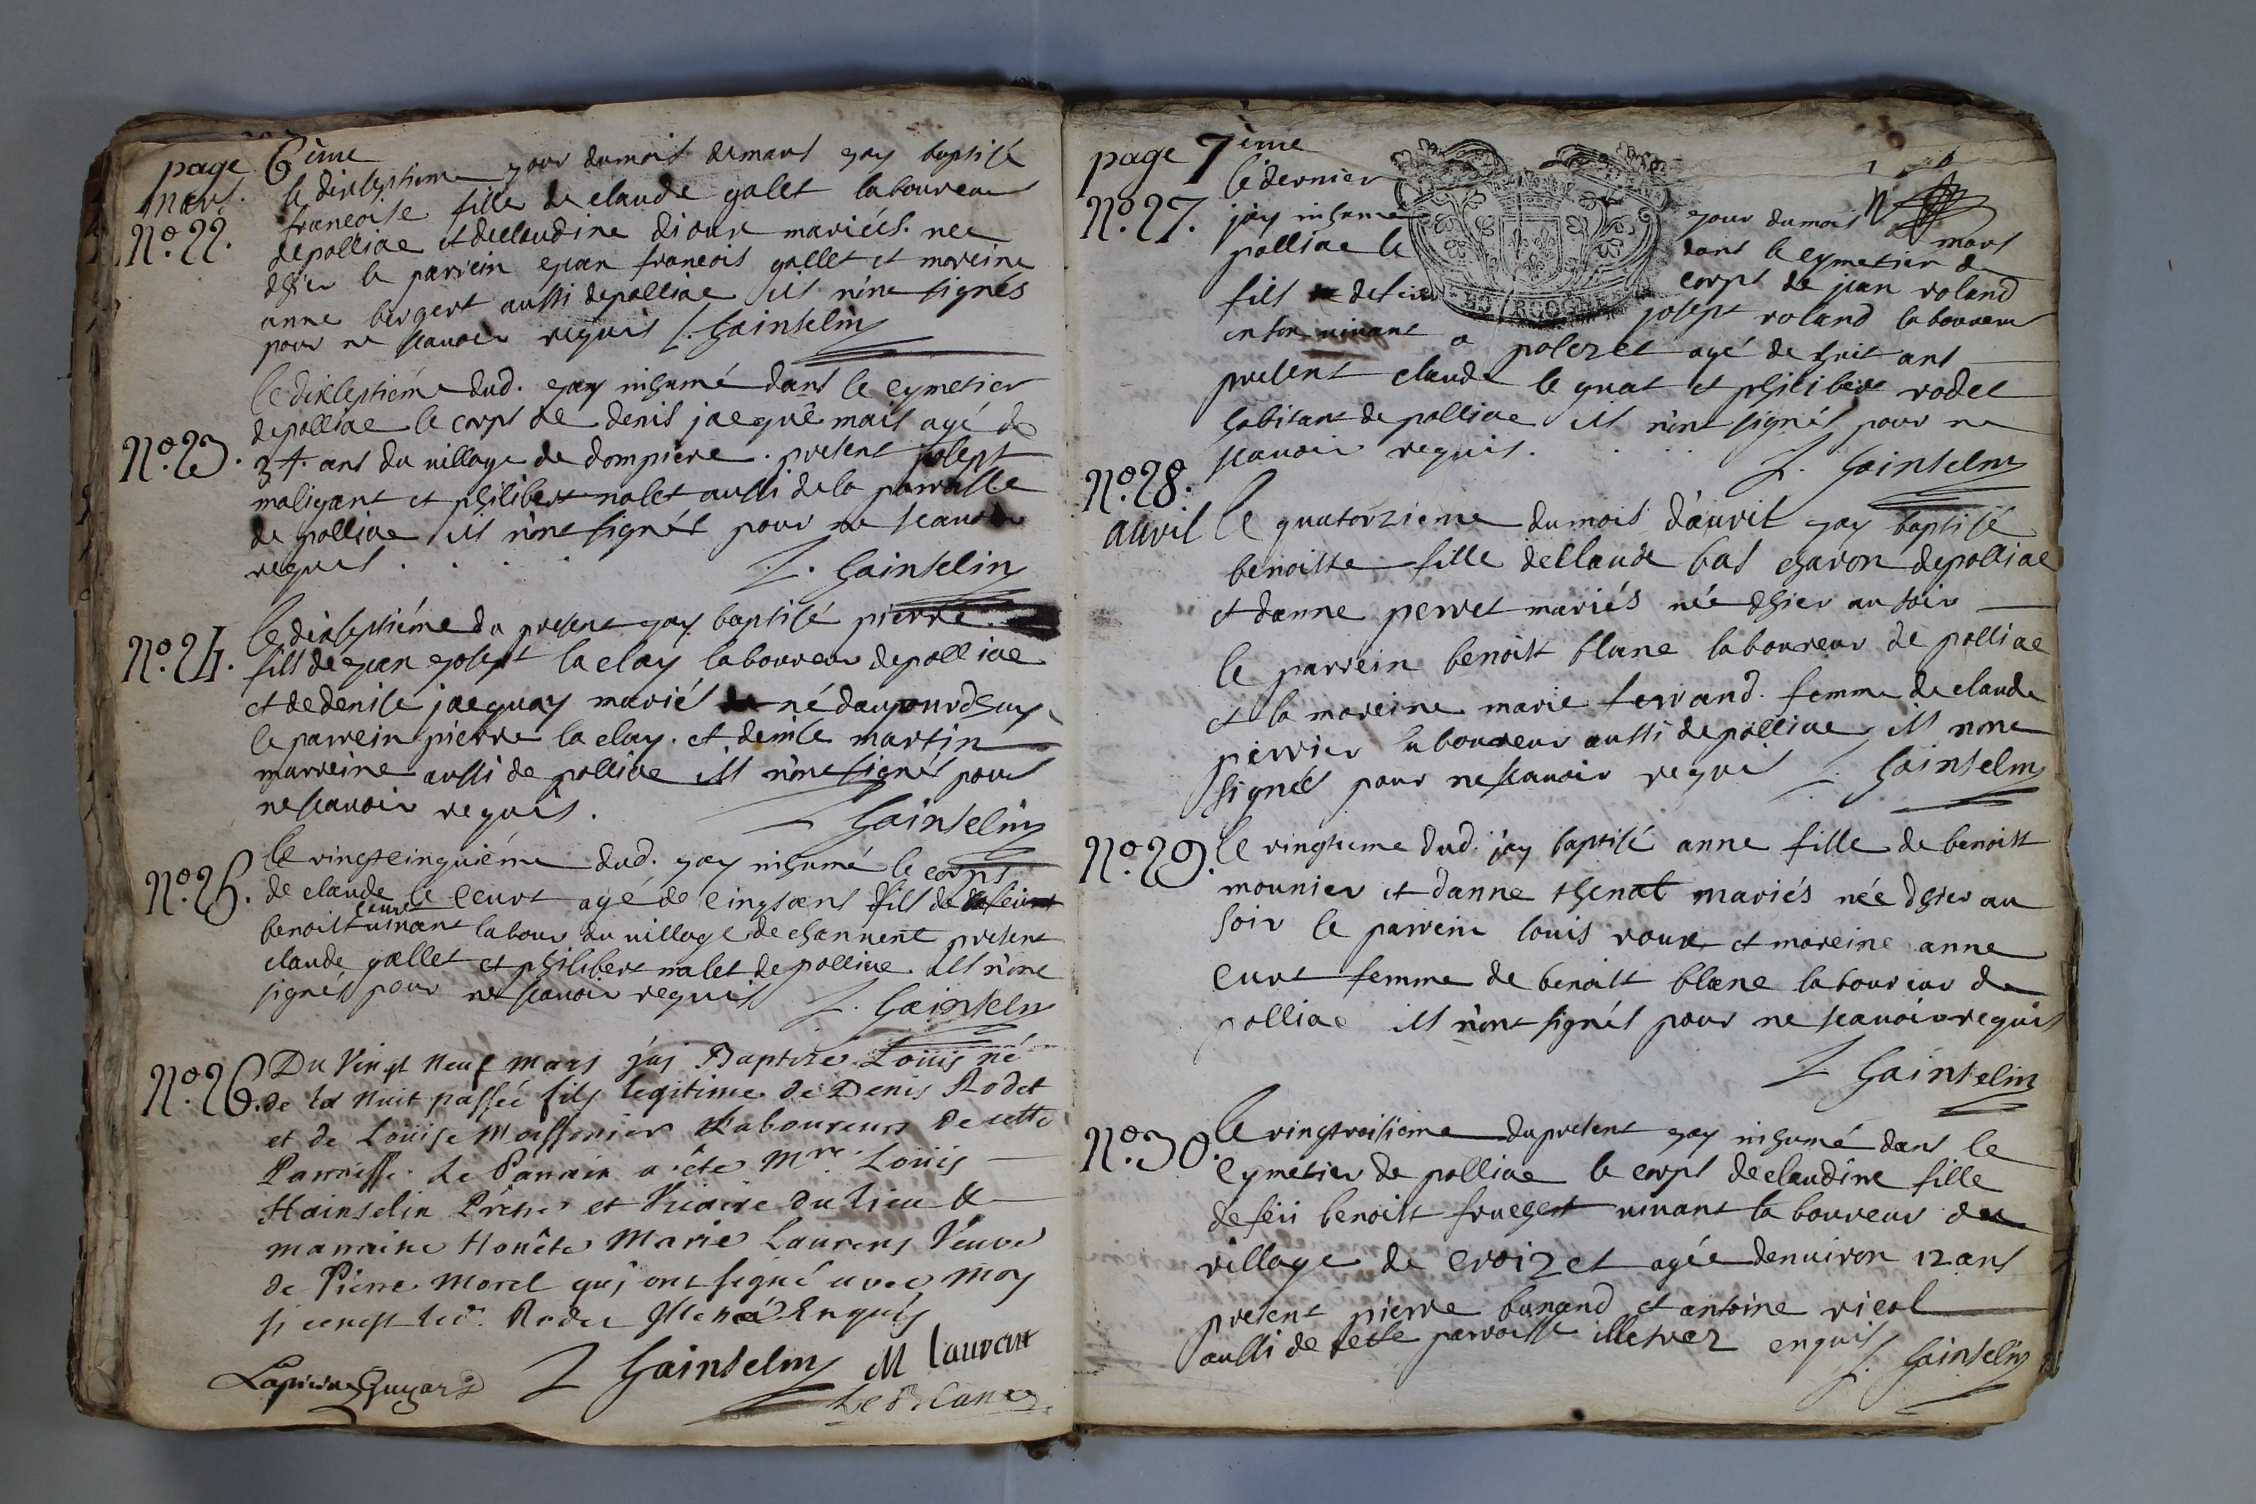 page 6ème
mars. le dixseptieme jour du mois de mars jay baptisé
N°. 22. francoise fille de claude galet laboureur
de polliac et de claudine dioux mariés. nee
dhier le parrein jean francois gallet et mareine
anne bergert aussi de polliac ils nont signés
pour ne scauoir requis L. hainselin
le dixseptiéme dud. jay inhumé dans le cymetier
de polliac le corps de denis jacquémais agé de
N°. 23. 34. ans du uillage de dompiere. present joseph
maligant et philibert malet aussi de la parroisse
de polliac ils nont signés pour ne scauoir
requis . . . . L. hainselin
le dixseptiéme du present jay baptisé pierre
N°. 24. fils de jean joseph la clay laboureur de polliac
et de denise jacquay mariés né daujourdhuy
le parrein pierre la clay. et denise martin
marreine aussi de polliac ils nont signés pour
ne scauoir requis.
hainselin
le vingtcinquiéme dud. jay inhumé le corps
N°. 25. de claude le ceurt agé de cinq ans fils de feu
ceurt
benoist uiuant labour du uillage de channent present
claude gallet et philibert malet de polliac. ils nont
signés pour ne scauoir requis L. hainselin
Du Vingt Neuf Mars j'ay Baptize Loüis né
N°. 26. de la Nuit passée fils legitime de Denis Rodet
et de Loüise Moissonier Laboureurs de cette
Parroisse. Le Parrain a été Mre. Loüis
Hainselin Prêtre et Vicaire du Lieu &
marraine Honête Marie Laurens Veuve
de Pierre Morel qui ont signé avec moy
si cenest led. Rodet Illeteré Enquis
L hainselin M laurent
Le Blanc
page 7ème
le dernier jour du mois mars
N°. 27. jay inhumé dans le cymetier de
polliac le corps de jean roland
fils de feu joseph roland laboureur
en son uiuant a polezet agé de huit ans
present claude le guat et philibert rodet
habitans de polliac ils nont signés pour ne
scauoir requis. . . . L. hainselin
N°. 28.
auril le quatorzieme du mois dauril jay baptisé
benoiste fille de Claude bas charon de polliac
et danne perret mariés née dhier au soir
le parrein benoist blanc laboureur de polliac
et la mareine marie ferrand. femme de claude
perrier laboureur aussi de polliac, ils nont
signés pour ne scauoir requis L. hainselin
N°. 29. le vingtieme dud. jay baptisé anne fille de benoist
mounier et danne thenat mariés née dhier au
soir le parrein louis roux et mareine anne
curt femme de benoist blanc laboureur de
polliac ils nont signés pour ne scauoir requis
L hainselin
N°. 30. le vingtroisieme du present jay inhumé dans le
cymetier de polliac le corps de claudine fille
de feü benoist frueget uiuant laboureur du
village de croizet agée denuiron 12 ans
present pierre bunand et antoine vicol
aussi de cette parroisse illetrez enquis
L. hainselin